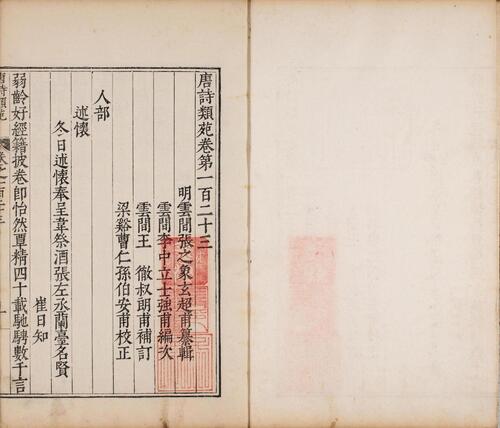 唐詩類苑卷第一百二十三
明雲間張之象玄超甫纂輯
雲間李中立士強甫編次
雲間王徹叔朗甫補訂
梁谿曹仁孫伯安甫校正
人部
述懷
冬日述懷奉呈韋祭酒張左丞蘭臺名賢
崔日知
弱齡好經籍披卷即怡然覃精四十載馳騁數千言
唐詩類苑